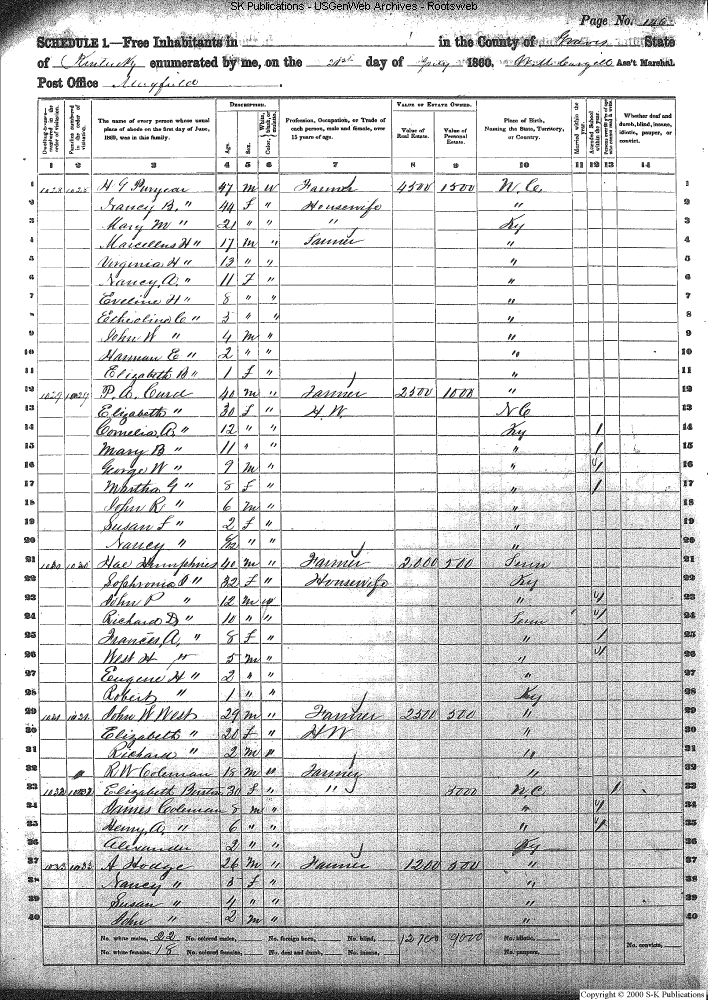 SK Publications - USGenWeb Archives - Rootsweb
Page No. 146
SCHEDULE 1.—Free Inhabitants in in the County of Graves State
of Kentucky enumerated by me, on the 21st day of July 1860. Ass't Marshal.
Post Office Mayfield
Dwelling-houses—numbered in the order of visitation.
Families numbered in the order of visitation.
The name of every person whose usual place of abode on the first day of June, 1860, was in this family.
DESCRIPTION.
Age.
Sex.
White, black, or mulatto.
Color,
Profession, Occupation, or Trade of each person, male and female, over 15 years of age.
VALUE OF ESTATE OWNED.
Value of Real Estate.
Value of Personal Estate.
Place of Birth, Naming the State, Territory, or Country.
Married within the year.
Attended School within the year.
Whether deaf and dumb, blind, insane, idiotic, pauper, or convict.
1 2 3 4 5 6 7 8 9 10 11 12 13 14
1 1028 1028 H G Puryear 47 M W Farmer 4500 1500 N.C. 1
2 Nancy B. " 44 F " Housewife " 2
3 Mary M " 21 " " " Ky 3
4 Marcellus H " 17 M " Farmer " 4
5 Virginia H " 13 " " " 5
6 Nancy A. " 11 F " " 6
7 Eveline H " 8 " " " 7
8 C " 5 " " " 8
9 John W " 4 M " " 9
10 Harman E " 2 " " " 10
11 Elizabeth B " 1 F " " 11
12 1029 1029 P. A. Curd 40 M " Farmer 2500 1000 " 12
13 Elizabeth " 30 F " H.W. N C 13
14 Cornelia A. " 12 " " Ky / 14
15 Mary B " 11 " " " / 15
16 George W " 9 M " " / 16
17 Martha G " 8 F " " / 17
18 John R " 6 M " " 18
19 Susan F " 2 F " " 19
20 Nancy " " " 20
21 1030 1030 Humphries 40 M " Farmer 2000 500 Tenn 21
22 Sophronia " 32 F " Housewife Ky 22
23 John P " 12 M " " / 23
24 Richard D " 10 " " Tenn / 24
25 Frances A, " 8 F " " / 25
26 West H " 5 M " " / 26
27 Eugene H " 2 " " " 27
28 Robert " 1 " " Ky 28
29 1031 1031 John W West 29 M " Farmer 2500 500 " 29
30 Elizabeth " 20 F " H W " 30
31 Richard " 2 M " " 31
32 R W Coleman 18 M " Farmer " 32
33 1032 1032 Elizabeth 30 F " " 5000 N.C. / 33
34 James Coleman 8 M " " / 34
35 Henry A. " 6 " " " / 35
36 Alexander 2 " " Ky 36
37 1033 1033 A Hodge 26 M " Farmer 1200 500 " 37
38 Nancy " 5 F " 38
39 Susan " 4 " " " 39
40 John " 2 M " " 40
No. white males, 22 No. colored males, No. foreign born, No. blind, 12700 9000 No. idiotic,
No. white females, 18 No. colored females, No. deaf and dumb, No. insane, No. paupers, No. convicts,
Copyright © 2000 S-K Publications